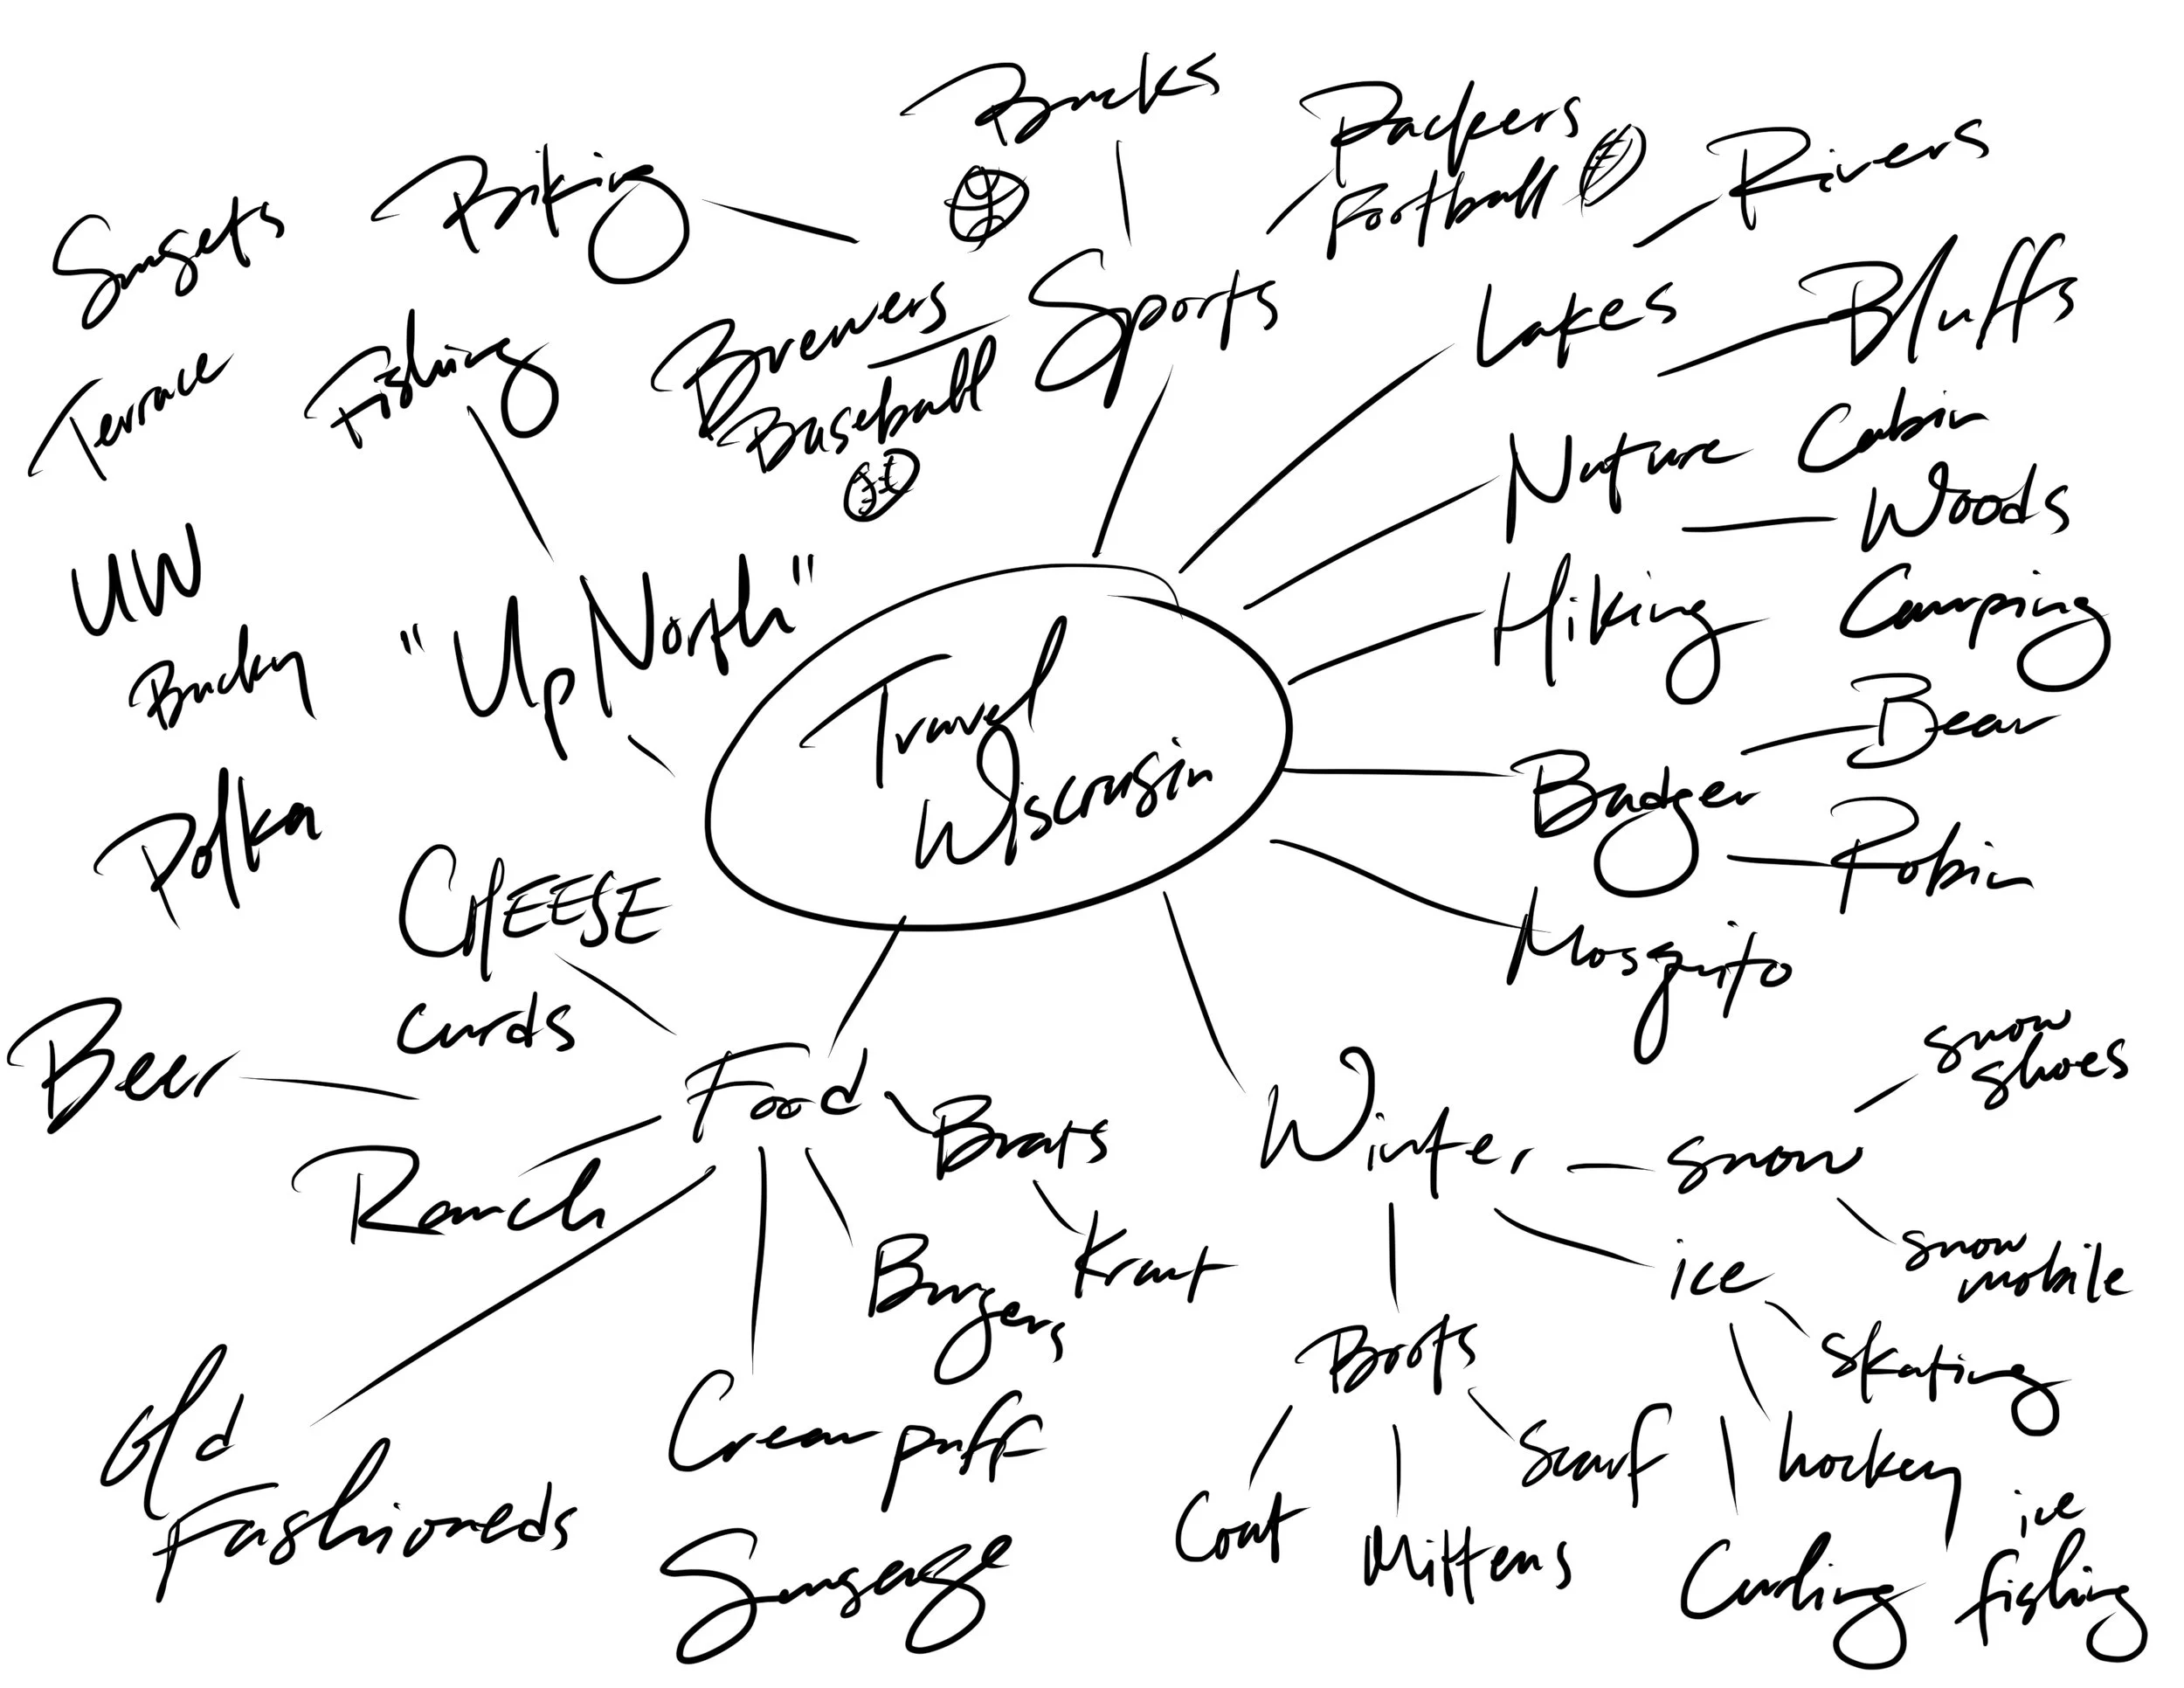 Bucks
Packers
Football
Rivers
Sunsets
Fishing
Brewers
Baseball
Sports
Lakes
Bluffs
Terrace
Nature
Cabin
Woods
UW
Bucky
"Up North"
Hiking
Camping
Travel
Wisconsin
Bear
Badger
Robin
Polka
CHEESE
curds
Mosquito
Beer
Food
Brats
Winter
snow
shoes
snow
Ranch
Burgers
Kraut
ice
snow
mobile
Boots
Skating
Old
Fashioneds
Cream puff
Scarf
hockey
Sausage
Coat
Mittens
Curling
ice
fishing